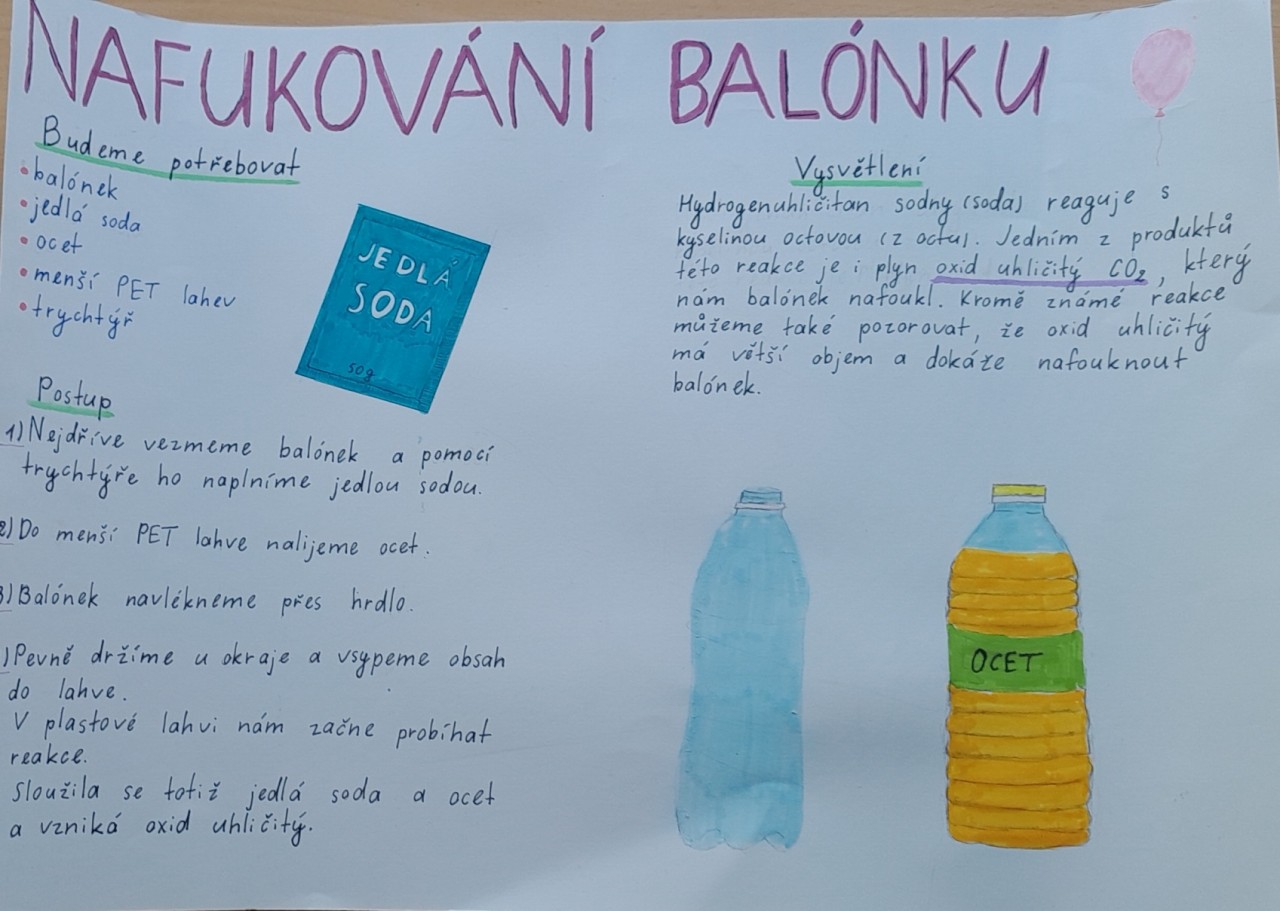 NAFUKOVÁNÍ BALÓNKU
Budeme potřebovat
• balónek
• jedlá soda
• ocet
• menší PET lahev
• trychtýř
JEDLÁ
SODA
50g
Postup
1) Nejdříve vezmeme balónek a pomocí
trychtýře ho naplníme jedlou sodou.
2) Do menší PET lahve nalijeme ocet.
3) Balónek navlékneme přes hrdlo.
) Pevně držíme u okraje a vsypeme obsah
do lahve.
V plastové lahvi nám začne probíhat
reakce.
Sloužila se totiž jedlá soda a ocet
a vzniká oxid uhličitý.
Vysvětlení
Hydrogenuhličitan sodny (soda) reaguje s
kyselinou octovou (z octu). Jedním z produktů
této reakce je i plyn oxid uhličitý CO₂, který
nám balónek nafoukl. Kromě známé reakce
můžeme také pozorovat, že oxid uhličitý
má větší objem a dokáže nafouknout
balónek.
OCET